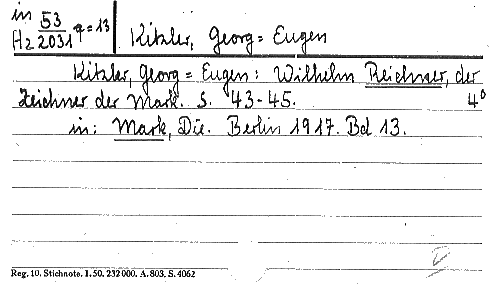 in 53
Hz 2031 q=13
Kitzler, Georg=Eugen
Kitzler, Georg=Eugen: Wilhelm Reichner, der
Zeichner der Mark. S. 43-45. 4°
in: Mark, Die. Berlin 1917. Bd 13.
Reg. 10. Stichnote. 1. 50. 232000. A. 803. S. 4062